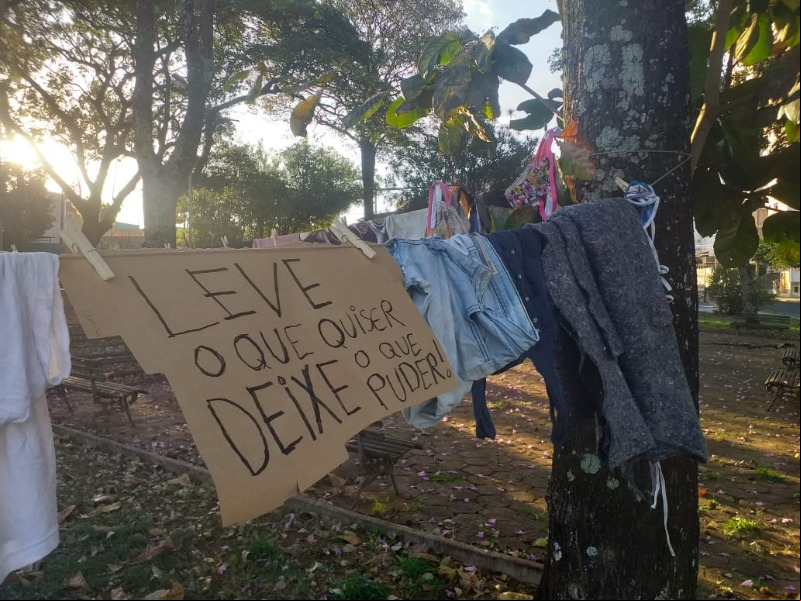 LEVE
O QUE QUISER
DEIXE O QUE
PUDER!